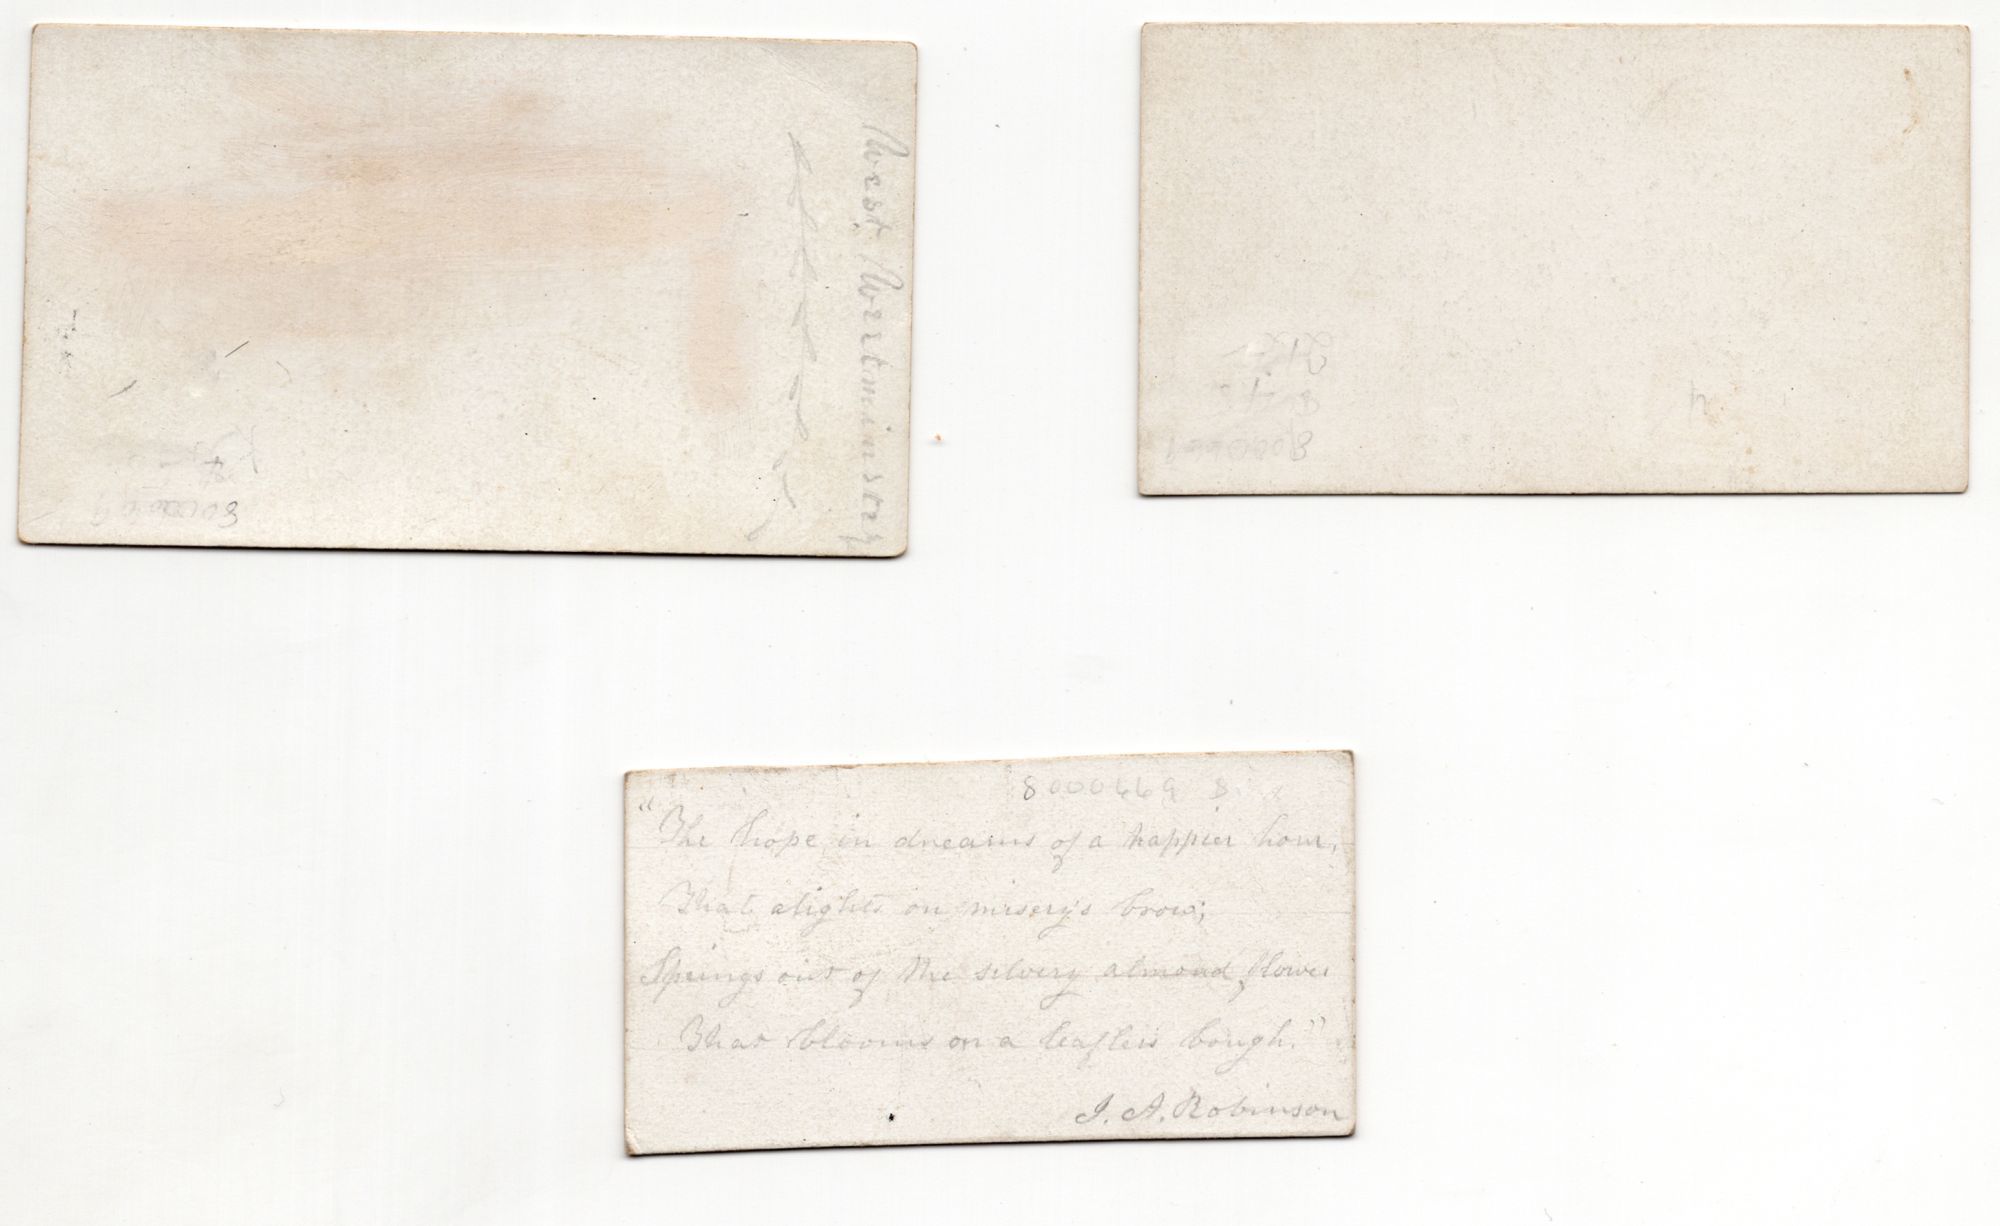 West Westminster
8000669
8000669 8
"The hope in dreams of a happier hour,
That alights on misery's brow;
Springs out of the silvery almond flower
That blooms on a leafless bough."
J. A. Robinson